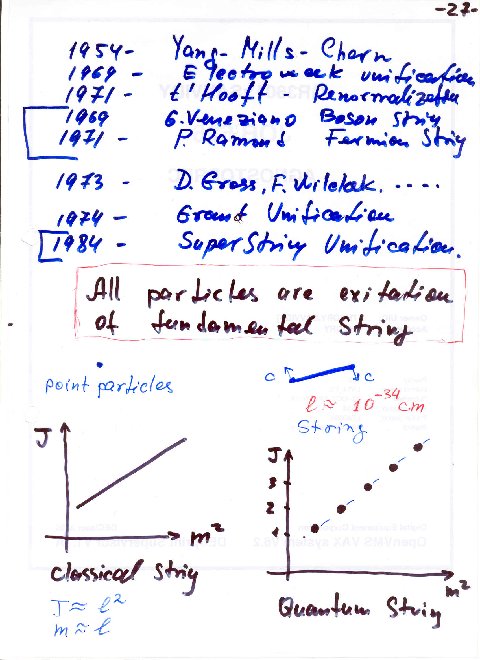 -27-
1954- Yang-Mills-Chern
1969 - Electroweak unification
1971 - t'Hooft - Renormalization
1969 G. Veneziano Boson Striy
1971 - P. Ramond Fermion Striy
1973 - D. Gross, F. Wilczak. ....
1974 - Grand Unification
1984 - SuperStriy Unification.
All particles are exitation
of fundamental Striy
point particles
c c
l ≈ 10⁻³⁴ cm
String
J
m²
Classical Striy
J ≈ l²
m ≈ l
J
3
2
1
m²
Quantum Striy